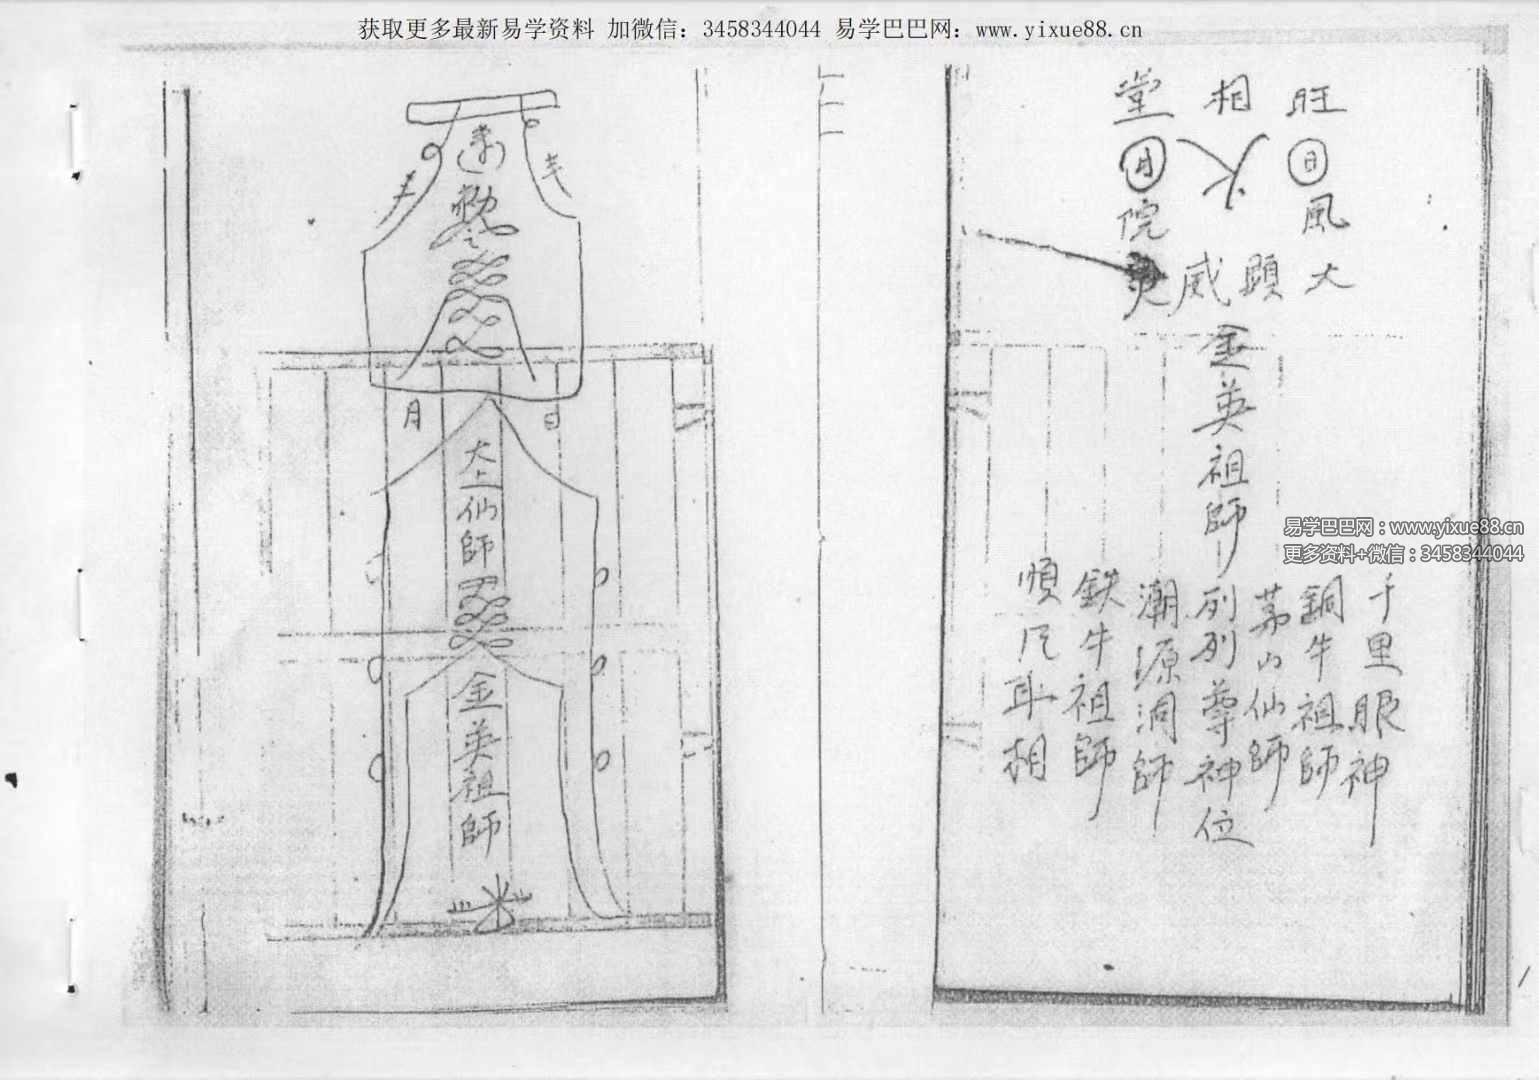 获取更多最新易学资料 加微信：3458344044 易学巴巴网：www.yixue88.cn
旺相堂
日 月
風 火 院
大顯威
金英祖師列列尊神位
千里眼神
銅牛祖師
茅山仙師
潮源洞師
鉄牛祖師
順風耳相
勅令
月 日
大上仙師
金英祖師
易学巴巴网：www.yixue88.cn
更多资料+微信：3458344044